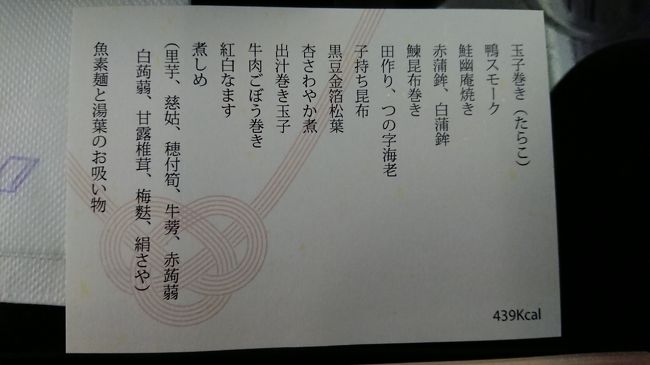 玉子巻き（たらこ）
鴨スモーク
鮭幽庵焼き
赤蒲鉾、白蒲鉾
鰊昆布巻き
田作り、つの字海老
子持ち昆布
黒豆金箔松葉
杏さわやか煮
出汁巻き玉子
牛肉ごぼう巻き
紅白なます
煮しめ
（里芋、慈姑、穂付筍、牛蒡、赤蒟蒻
白蒟蒻、甘露椎茸、梅麩、絹さや）
魚素麺と湯葉のお吸い物
439Kcal